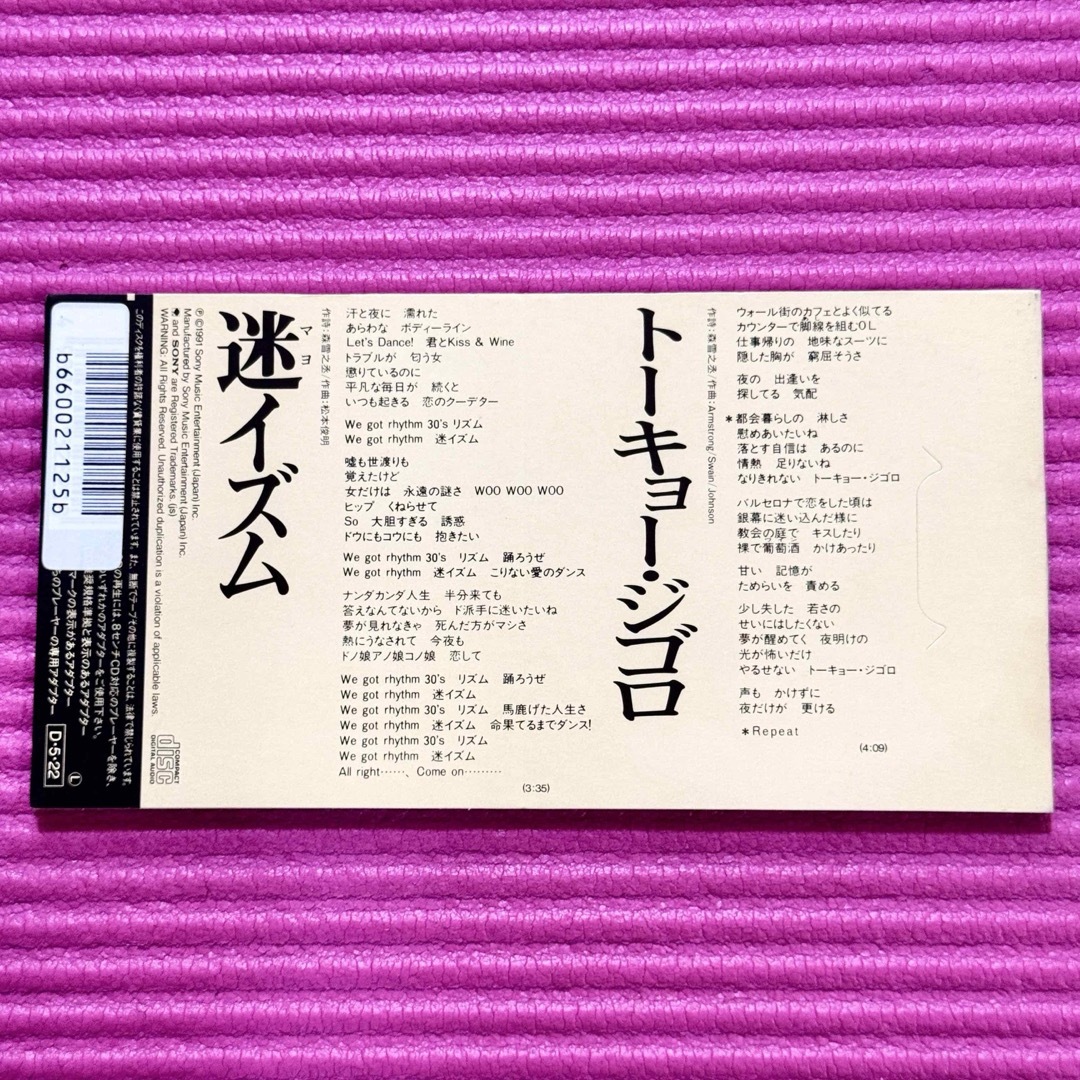 迷イズム
マヨ
作詩：森雪之丞/作曲：松本俊明
汗と夜に 濡れた
あらわな ボディーライン
Let's Dance! 君とKiss & Wine
トラブルが 匂う女
懲りているのに
平凡な毎日が 続くと
いつも起きる 恋のクーデター
We got rhythm 30's リズム
We got rhythm 迷イズム
嘘も世渡りも
覚えたけど
女だけは 永遠の謎さ WOO WOO WOO
ヒップ くねらせて
So 大胆すぎる 誘惑
ドウにもコウにも 抱きたい
We got rhythm 30's リズム 踊ろうぜ
We got rhythm 迷イズム こりない愛のダンス
ナンダカンダ人生 半分来ても
答えなんてないから ド派手に迷いたいね
夢が見れなきゃ 死んだ方がマシさ
熱にうなされて 今夜も
ドノ娘アノ娘コノ娘 恋して
We got rhythm 30's リズム 踊ろうぜ
We got rhythm 迷イズム
We got rhythm 30's リズム 馬鹿げた人生さ
We got rhythm 迷イズム 命果てるまでダンス!
We got rhythm 30's リズム
We got rhythm 迷イズム
All right……、Come on………
(3:35)
トーキョー・ジゴロ
作詩：森雪之丞/作曲：Armstrong/Swain/Johnson
ウォール街のカフェとよく似てる
カウンターで脚線を組むOL
仕事帰りの 地味なスーツに
隠した胸が 窮屈そうさ
夜の 出逢いを
探してる 気配
＊都会暮らしの 淋しさ
慰めあいたいね
落とす自信は あるのに
情熱 足りないね
なりきれない トーキョー・ジゴロ
バルセロナで恋をした頃は
銀幕に迷い込んだ様に
教会の庭で キスしたり
裸で葡萄酒 かけあったり
甘い 記憶が
ためらいを 責める
少し失した 若さの
せいにはしたくない
夢が醒めてく 夜明けの
光が怖いだけ
やるせない トーキョー・ジゴロ
声も かけずに
夜だけが 更ける
＊Repeat
(4:09)
℗©1991 Sony Music Entertainment (Japan) Inc.
Manufactured by Sony Music Entertainment (Japan) Inc.
and SONY are Registered Trademarks. (js)
WARNING: All Rights Reserved. Unauthorized duplication is a violation of applicable laws.
COMPACT
disc
DIGITAL AUDIO
このディスクを権利者の許諾なく賃貸業に使用することは禁止されています。また、無断でテープその他に複製することは、法律で禁じられています。
の再生には、8センチCD対応のプレーヤーを除き、
いずれかのアダプターをご使用下さい。
奨規格準拠と表示のあるアダプター
マークの表示があるアダプター
のプレーヤーの専用アダプター
Ⓛ
D·5·22
b6660021125b